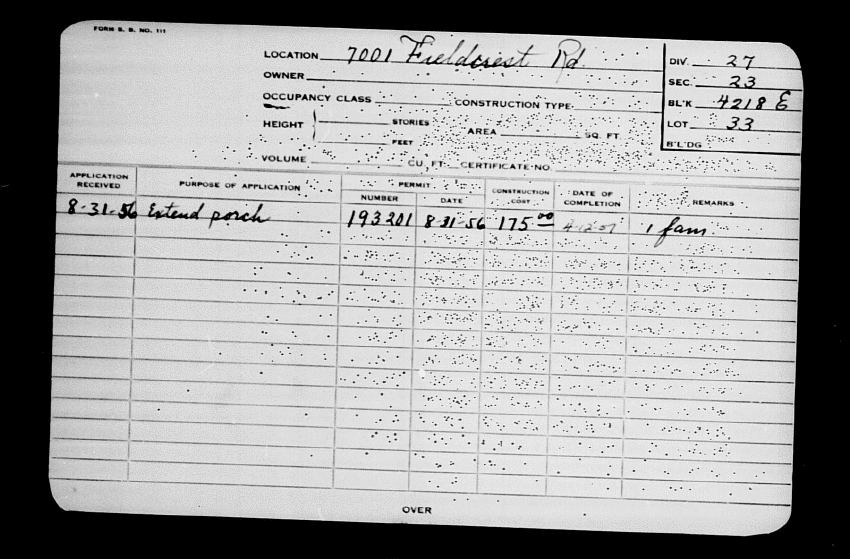 FORM S. B. NO. 111
LOCATION 7001 Fieldcrest Rd.
OWNER
OCCUPANCY CLASS CONSTRUCTION TYPE
HEIGHT STORIES
FEET
AREA SQ. FT.
VOLUME CU. FT. CERTIFICATE NO.
DIV. 27
SEC. 23
BL'K 4218 E
LOT 33
B'L'DG
APPLICATION RECEIVED PURPOSE OF APPLICATION PERMIT NUMBER DATE CONSTRUCTION COST DATE OF COMPLETION REMARKS
8-31-56 Extend porch 193201 8-31-56 175.00 1 fam
OVER